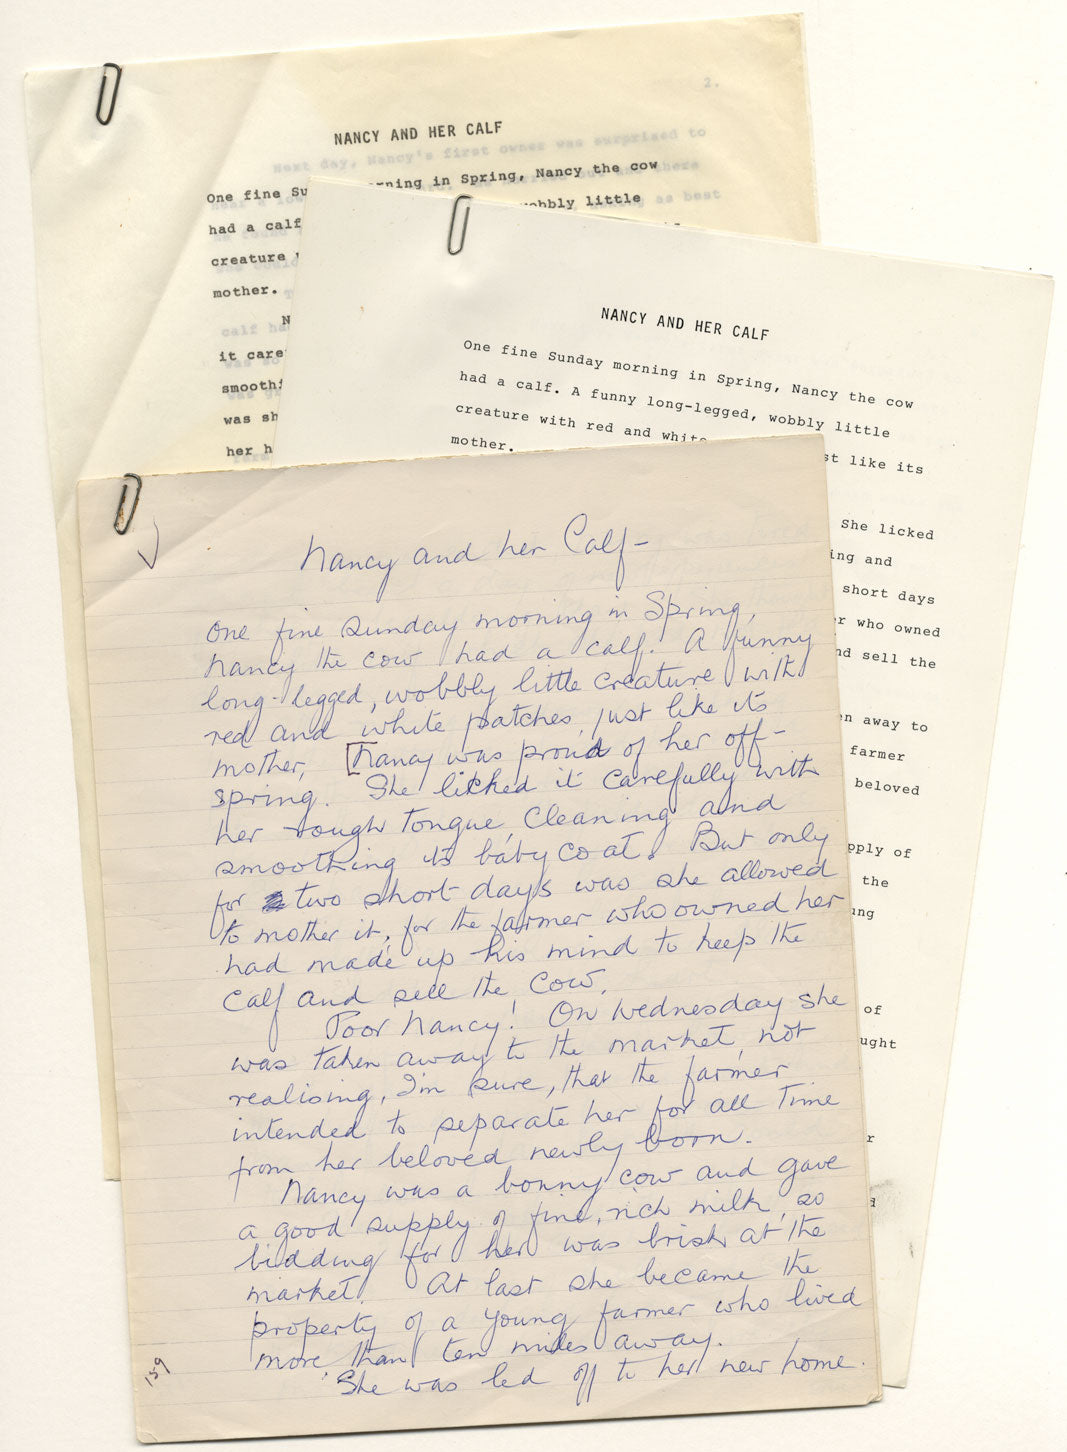 2.
NANCY AND HER CALF
Next day, Nancy's first owner was surprised to
One fine Su rning in Spring, Nancy the cow
had a calf wobbly little
as best
creature
mother.
N
calf ha
it care
smoothi
was sh
her h
NANCY AND HER CALF
One fine Sunday morning in Spring, Nancy the cow
had a calf. A funny long-legged, wobbly little
creature with red and white st like its
mother.
She licked
ing and
short days
er who owned
nd sell the
en away to
farmer
beloved
pply of
the
ung
of
ught
r
d
Nancy and her Calf-
One fine Sunday morning in Spring,
Nancy the cow had a calf. A funny
long-legged, wobbly little creature with
red and white patches, just like its
mother, [Nancy was proud of her off-
spring. She licked it carefully with
her rough tongue, cleaning and
smoothing its baby coat. But only
for two short days was she allowed
to mother it, for the farmer who owned her
had made up his mind to keep the
calf and sell the cow.
Poor Nancy! On Wednesday she
was taken away to the market, not
realising, I'm sure, that the farmer
intended to separate her for all time
from her beloved newly born.
Nancy was a bonny cow and gave
a good supply of fine, rich milk, so
bidding for her was brisk at the
market. At last she became the
property of a young farmer who lived
more than ten miles away.
She was led off to her new home.
159